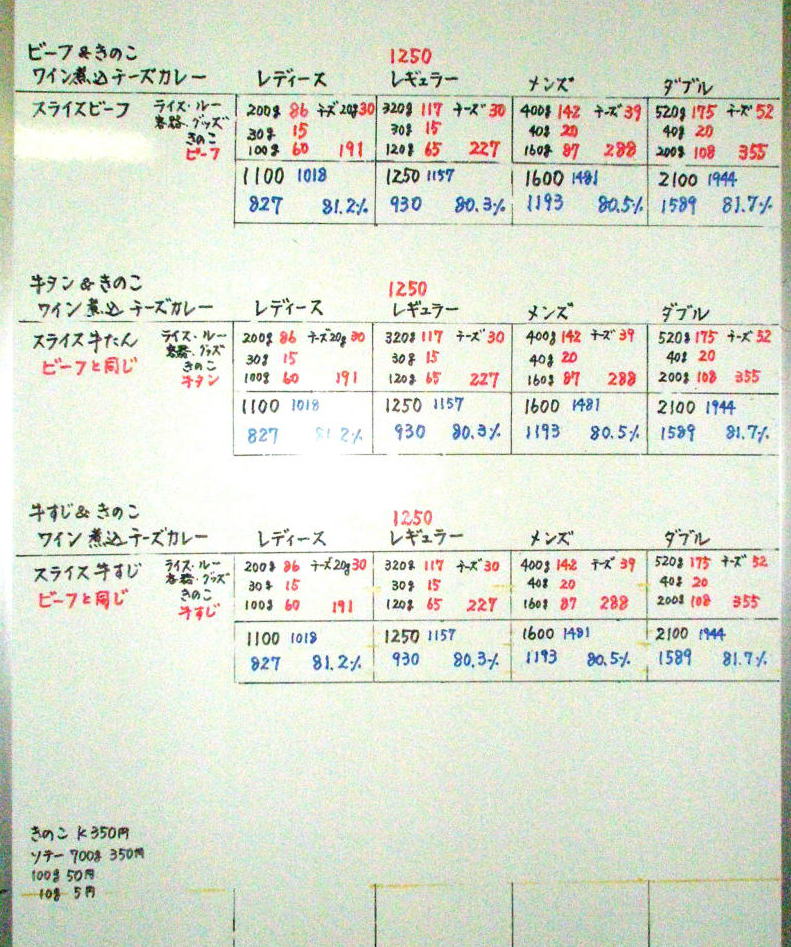 ビーフ&きのこ 1250
ワイン煮込チーズカレー レディース レギュラー メンズ ダブル
スライスビーフ ライス・ルー 200g 86 チーズ20g30 320g 117 チーズ30 400g 142 チーズ39 520g 175 チーズ52
容器・グッズ
きのこ 30g 15 30g 15 40g 20 40g 20
ビーフ 100g 60 191 120g 65 227 160g 87 288 200g 108 355
1100 1018 1250 1157 1600 1481 2100 1944
827 81.2% 930 80.3% 1193 80.5% 1589 81.7%
牛タン&きのこ 1250
ワイン煮込チーズカレー レディース レギュラー メンズ ダブル
スライス牛たん ライス・ルー 200g 86 チーズ20g30 320g 117 チーズ30 400g 142 チーズ39 520g 175 チーズ52
容器・グッズ
ビーフと同じ きのこ 30g 15 30g 15 40g 20 40g 20
牛タン 100g 60 191 120g 65 227 160g 87 288 200g 108 355
1100 1018 1250 1157 1600 1481 2100 1944
827 81.2% 930 80.3% 1193 80.5% 1589 81.7%
牛すじ&きのこ 1250
ワイン煮込チーズカレー レディース レギュラー メンズ ダブル
スライス牛すじ ライス・ルー 200g 86 チーズ20g30 320g 117 チーズ30 400g 142 チーズ39 520g 175 チーズ52
容器・グッズ
ビーフと同じ きのこ 30g 15 30g 15 40g 20 40g 20
牛すじ 100g 60 191 120g 65 227 160g 87 288 200g 108 355
1100 1018 1250 1157 1600 1481 2100 1944
827 81.2% 930 80.3% 1193 80.5% 1589 81.7%
きのこ K350円
ソテー 700g 350円
100g 50円
10g 5円